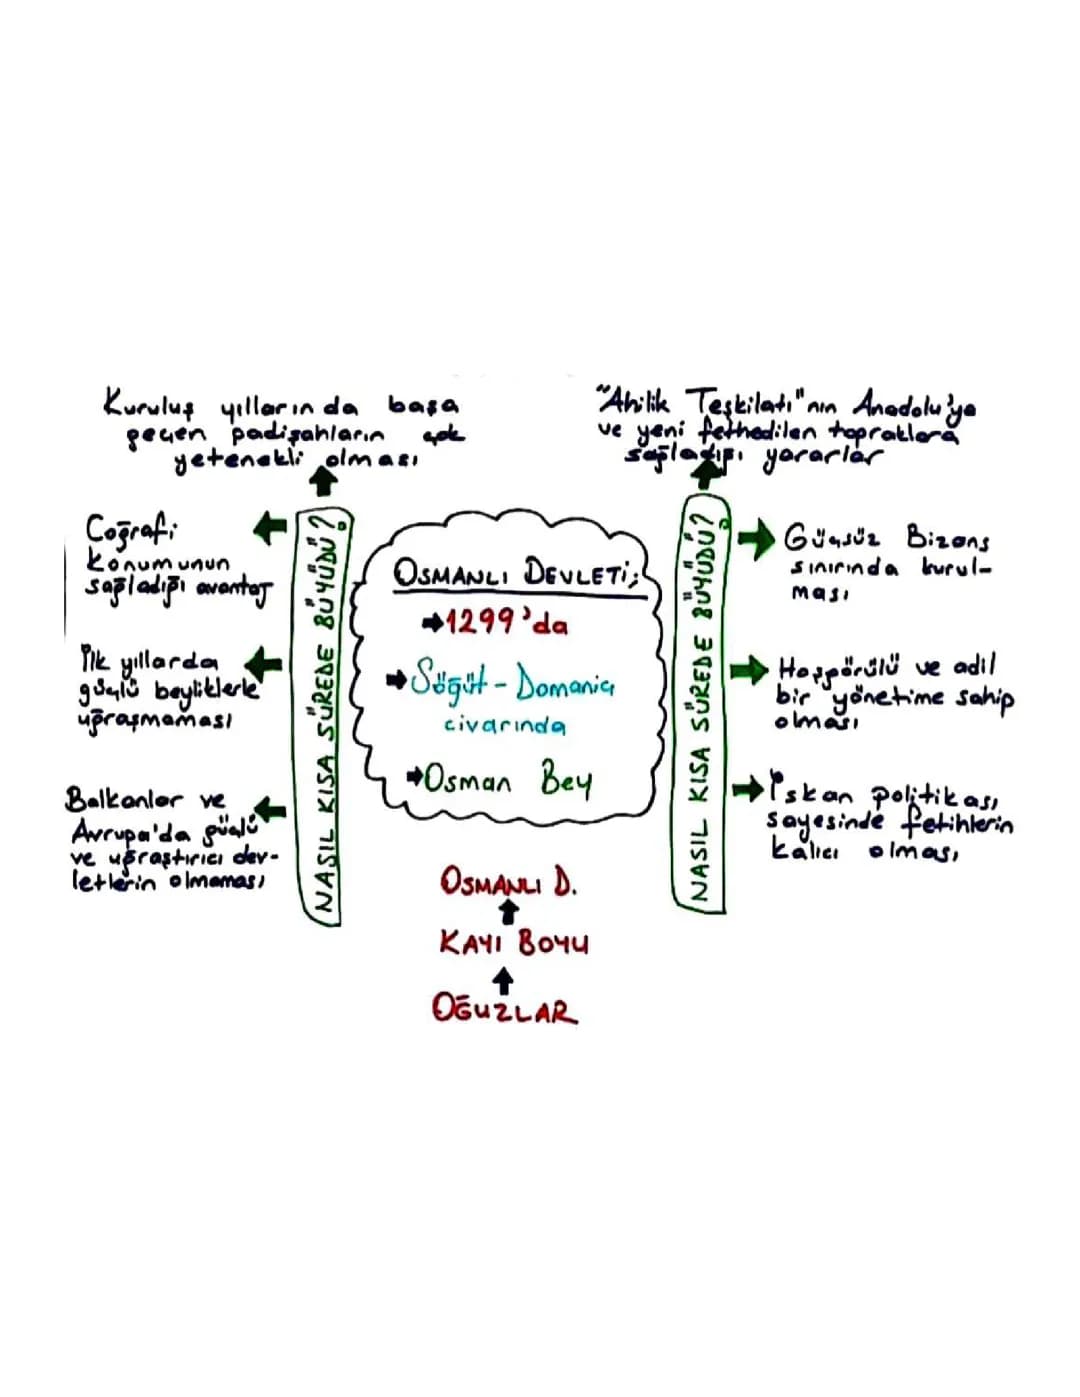 Kuruluş yıllarında başa
geçen padişahların çok
yetenekli olması
Coğrafi
konumunun
sağladığı avantaj
İlk yıllarda
güçlü beyliklerle
uğraşmaması
Balkanlar ve
Avrupa'da güçlü
ve uğraştırıcı dev-
letlerin olmaması
NASIL KISA SÜREDE BÜYÜDÜ?
OSMANLI DEVLETİ;
1299'da
Söğüt - Domaniç
civarında
Osman Bey
OSMANLI D.
KAYI BOYU
OĞUZLAR
NASIL KISA SÜREDE BÜYÜDÜ?
"Ahilik Teşkilatı"nın Anadolu'ya
ve yeni fethedilen topraklara
sağladığı yararlar
Güçsüz Bizans
sınırında kurul-
ması
Hoşgörülü ve adil
bir yönetime sahip
olması
İskan politikası
sayesinde fetihlerin
kalıcı olması